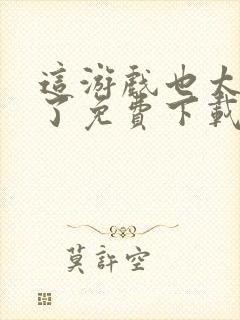 這游戲也太
了免費下載
莫許空